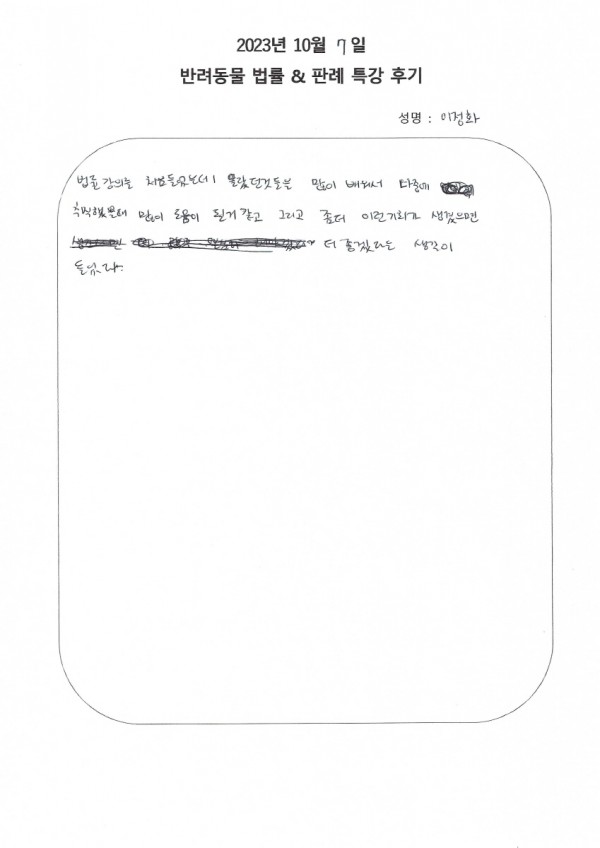 2023년 10월 7일
반려동물 법률 & 판례 특강 후기
성명 : 이정화
법률 강의는 처음들었는데 몰랐던것들을 많이 배워서 나중에
많이 도움이 될거 같고 그리고 좀더 이런기회가 생겼으면
더 좋겠다는 생각이
들었다.